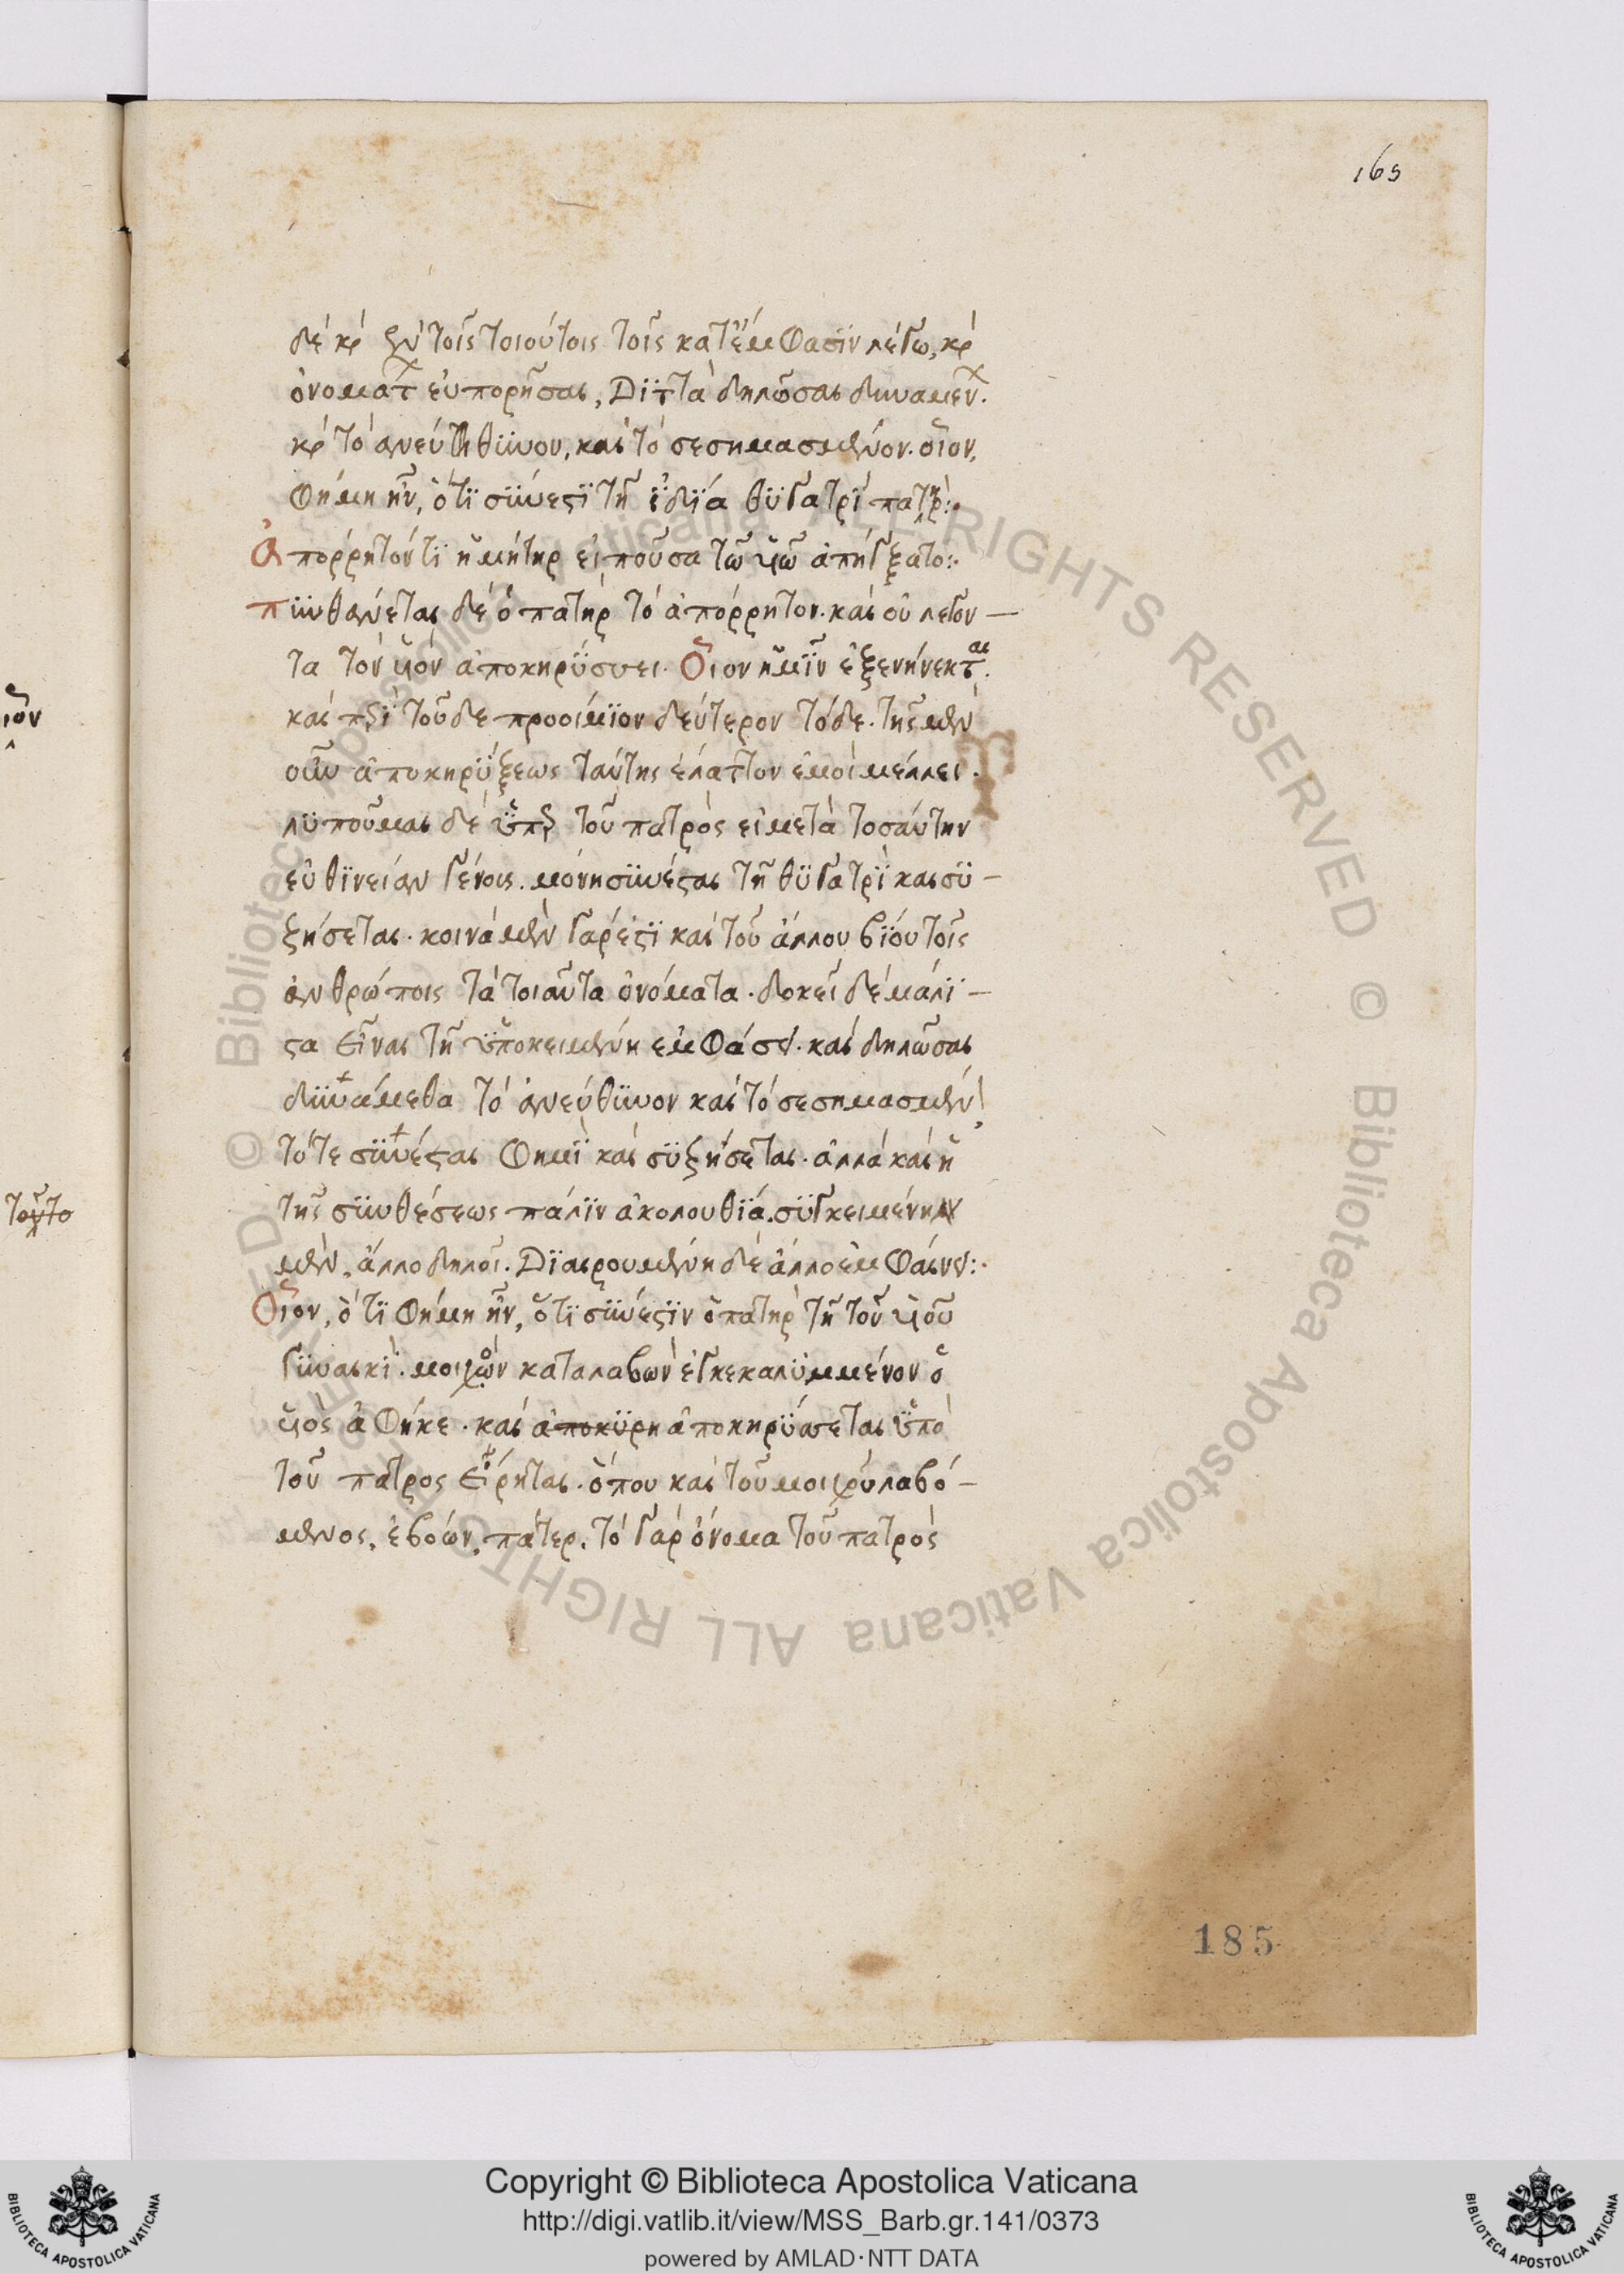 165
δὲ κὶ ἐν τοῖς τοιούτοις τοῖς κατ' ἔμφασιν λέγω, κὶ
ὀνομάτ εὐπορῆσαι, διττὰ δηλῶσαι δυναμέν.
κὶ τὸ ἀνεύθϋνον, καὶ τὸ σεσημασμένον. οἷον,
Φήμη ἦν, ὅτϊ σϋνεστϊ τῆ ἰδΐα θϋγατρΐ πατὴρ:
Ἀπορρητόν τϊ ἡ μήτηρ εἰποῦσα τῶ ϋἱῶ ἀπήγξατο:
πϋνθάνεται δὲ ὁ πατὴρ τὸ ἀπόρρητον. καὶ οὐ λέγον –
τα τὸν υἱόν ἀποκηρΰσσει. Οἷον ἡμῖν ἐξενήνεκται.
καὶ περὶ τοῦδε προοίμϊον δεύτερον τόδε. τῆς μὲν
οὖν ἀποκηρΰξεως ταύτης ἔλαττον ἐμοὶ μέλλει.
λϋποῦμαι δὲ ὑπὲρ τοῦ πατρὸς εἰ μετὰ τοσαύτην
εὐθϊνείαν γένοις. μόνη σϋνέσται τῆ θϋγατρῒ καὶ σϋ –
ζήσεται. κοινὰ μὲν γάρ ἐστϊ καὶ τοῦ ἄλλου βΐου τοῖς
ἀνθρώποις τὰ τοιαῦτα ὀνόματα. δοκεῖ δὲ μάλϊ –
στα εἶναι τῆ ὑποκειμένη ἐμφάσει. καὶ δηλῶσαι
δϋνάμεθα τὸ ἀνεύθϋνον καὶ τὸ σεσημασμένον
τό τε σϋνέσται φημῒ καὶ σϋζήσεται. ἀλλὰ καὶ ἡ
τῆς σϋνθέσεως πάλϊν ἀκολουθϊά. σϋγκειμένη
μὲν, ἄλλο δηλοῖ. Δϊαιρουμένη δὲ ἄλλο ἐμφαίνει:
Οἷον, ὅτϊ Φήμη ἦν, ὅτϊ σϋνέστϊν ὁ πατὴρ τῆ τοῦ υἱοῦ
γϋναικὶ. μοιχὸν καταλαβὼν ἐγκεκαλϋμμένον ὁ
υἱὸς ἀφῆκε. καὶ ἀποκϋρη ἀποκηρΰσσεται ὑπὸ
τοῦ πατρος εἴρηται. ὅπου καὶ τοῦ μοιχοῦ λαβό –
μενος, ἐβόων, πάτερ, τὸ γὰρ ὄνομα τοῦ πατρὸς
185
Copyright © Biblioteca Apostolica Vaticana
http://digi.vatlib.it/view/MSS_Barb.gr.141/0373
powered by AMLAD·NTT DATA